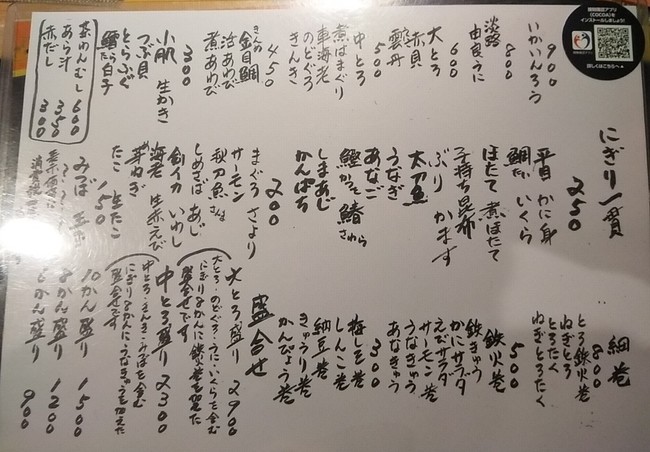 にぎり一貫
いかいんろう
900
淡路
由良うに
800
大とろ
600
赤貝
雲丹
中とろ
500
煮はまぐり
車海老
のどぐろ
きんき
450
きんめ
金目鯛
活あわび
煮あわび
300
小肌 生かき
つぶ貝
とらふぐ
鱈白子
たら
茶わんむし 600
あら汁 350
赤だし 300
250
平目 かに身
鯛 いくら
たい
ほたて 煮ほたて
子持ち昆布
ぶり かます
太刀魚
うなぎ
あなご
鰹 鰆
かつを さわら
しまあじ
かんぱち
200
まぐろ さより
サーモン
秋刀魚
さんま
しめさば あじ
剣イカ いわし
海老 生赤えび
芽ねぎ
たこ 生たこ
150
みつば 玉子
消費税
細巻
800
とろ鉄火巻
ねぎとろ
とろたく
ねぎとろたく
500
鉄火巻
鉄きゅう
かにサラダ
えびサラダ
サーモン巻
うなきゅう
あなきゅう
300
梅しそ巻
しんこ巻
納豆巻
きゅうり巻
かんぴょう巻
盛合せ
大とろ盛り 2900
大とろ・のどぐろ・うに・いくらを含む
にぎり8かんに鉄火巻を加えた
盛合せです
中とろ盛り 2300
盛合せです
10かん盛り 1500
8かん盛り 1200
6かん盛り 900
接触確認アプリ
(COCOA)を
インストールしましょう!
詳しくはこちらへ